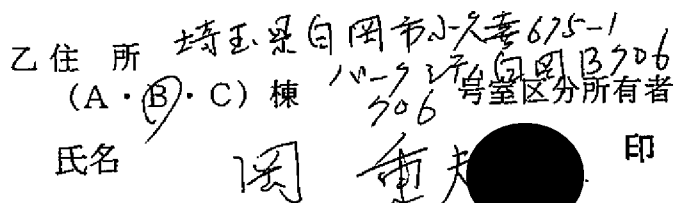 乙住所 埼玉県白岡市小久喜675-1
パークシティ白岡B706
(A・B・C)棟 706 号室区分所有者
氏名 岡 重 印